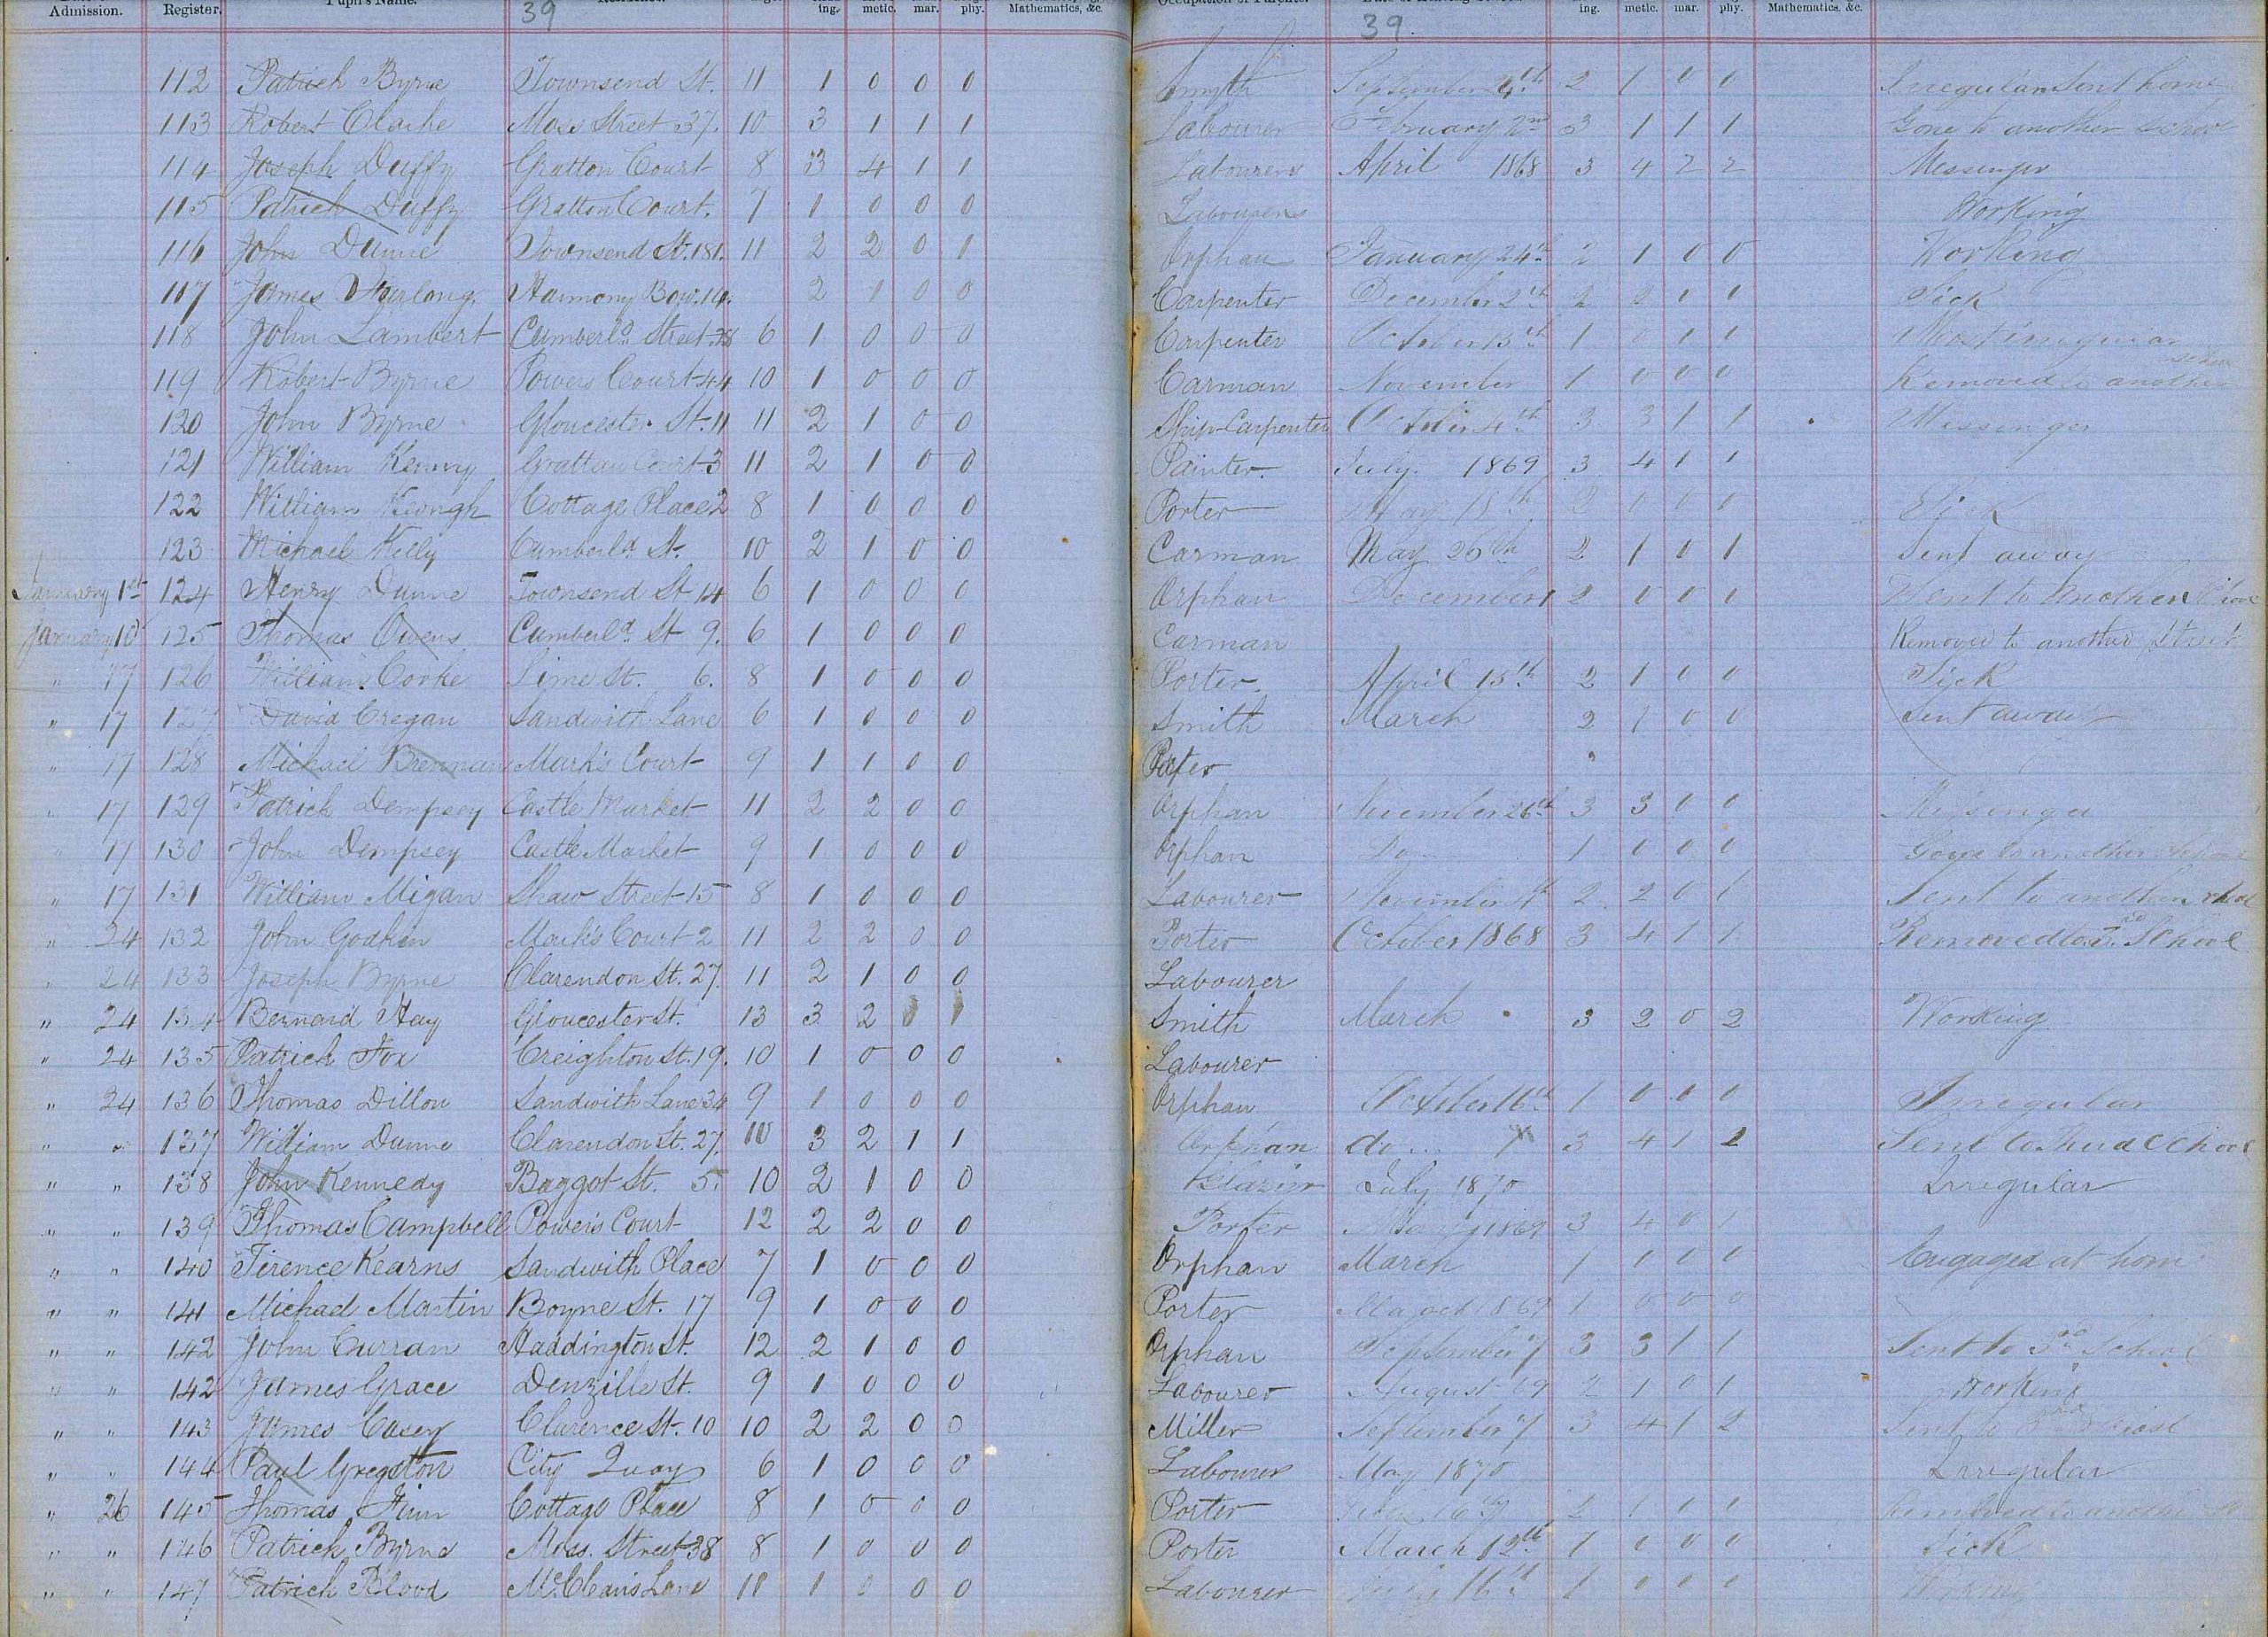 Admission. Register. Pupil's Name. 39 Residence. ing. metic. mar. phy. Mathematics, &c. Occupation of Parents. 39 ing. metic. mar. phy. Mathematics, &c.
112 Patrick Byrne Townsend St. 11 1 0 0 0 Smyth September 24th 2 1 0 0 Irregular Sent home
113 Robert Clarke Moss Street 37. 10 3 1 1 1 Labourer February 2nd 3 1 1 1 Gone to another School
114 Joseph Duffy Gratton Court 8 3 4 1 1 Labourer April 1868 3 4 2 2 Messenger
115 Patrick Duffy Gratton Court. 7 1 0 0 0 Labourer Working
116 John Dunne Townsend St. 181. 11 2 2 0 1 Orphan January 24th 2 1 0 0 Working
117 James Furlong Harmony Row. 14. 2 1 0 0 Carpenter December 2nd 2 0 1 1 Sick
118 John Lambert Cumberld Street 28 6 1 0 0 0 Carpenter October 13th 1 0 1 1 Most irregular
119 Robert Byrne Powers Court 44 10 1 0 0 0 Carman November 1 0 0 0 Removed to another school
120 John Byrne Gloucester St. 11 11 2 1 0 0 Ship-Carpenter October 4th 3 3 1 1 Messenger
121 William Kenny Grattan Court 3 11 2 1 0 0 Painter July. 1869 3 4 1 1
122 William Keough Cottage Place 2 8 1 0 0 0 Porter May 18th 2 1 0 0 Sick
123 Michael Kelly Cumberld St. 10 2 1 0 0 Carman May 26th 2 1 0 1 Sent away
January 1st 124 Henry Dunne Townsend St 14 6 1 0 0 0 Orphan December 1 2 0 0 0 Went to another School
January 10 125 Thomas Owens Cumberld St 9. 6 1 0 0 0 Carman Removed to another Street
" 17 126 William Corke Lime St. 6. 8 1 0 0 0 Porter. April 15th 2 1 0 0 Sick
" 17 127 David Cregan Sandwith Lane 6 1 0 0 0 Smith March 2 1 0 0 Sent away
" 17 128 Michael Brennan Mark's Court 9 1 1 0 0 Porter
" 17 129 Patrick Dempsey Castle Market 11 2 2 0 0 Orphan November 26th 3 3 0 0 Messenger
" 17 130 John Dempsey Castle Market 9 1 0 0 0 Orphan Do 1 0 0 0 Gone to another School
" 17 131 William Migan Shaw Street 15 8 1 0 0 0 Labourer November 2 2 0 1 Sent to another school
" 24 132 John Godkin Mark's Court 2 11 2 2 0 0 Porter October 1868 3 4 1 1 Removed to 3rd School
" 24 133 Joseph Byrne Clarendon St. 27. 11 2 1 0 0 Labourer
" 24 134 Bernard Hay Gloucester St. 13 3 2 1 Smith March 3 2 0 2 Working
" 24 135 Patrick Fox Creighton St. 19. 10 1 0 0 0 Labourer
" 24 136 Thomas Dillon Sandwith Lane 34 9 1 0 0 0 Orphan October 16th 1 0 0 0 Irregular
" " 137 William Dunne Clarendon St. 27. 10 3 2 1 1 Orphan do 3 4 1 2 Sent to Third School
" " 138 John Kennedy Baggot St. 5. 10 2 1 0 0 Glazier July 1870 Irregular
" " 139 Thomas Campbell Power's Court 12 2 2 0 0 Porter 1869 3 4 0 1
" " 140 Terence Kearns Sandwith Place 7 1 0 0 0 Orphan March 1 1 0 0 Engaged at home
" " 141 Michael Martin Boyne St. 17 9 1 0 0 0 Porter March 1869 1 0 0 0
" " 142 John Curran Haddington St. 12 2 1 0 0 Orphan September 3 3 1 1 Sent to 3rd School
" " 142 James Grace Denzille St. 9 1 0 0 0 Labourer August 69 2 1 0 1 Working
" " 143 James Casey Clarence St. 10 10 2 2 0 0 Miller September 3 4 1 2 Sent to 3rd School
" " 144 Paul Gregston City Quay 6 1 0 0 0 Labourer May 1870 Irregular
" 26 145 Thomas Finn Cottage Place 8 1 0 0 0 Porter 2 1 1 0 Removed to another
" " 146 Patrick Byrne Moss. Street 38 8 1 0 0 0 Porter March 12th 1 0 0 0 Sick
" " 147 Patrick Blood McClean's Lane 11 1 0 0 0 Labourer July 16th 1 0 0 0